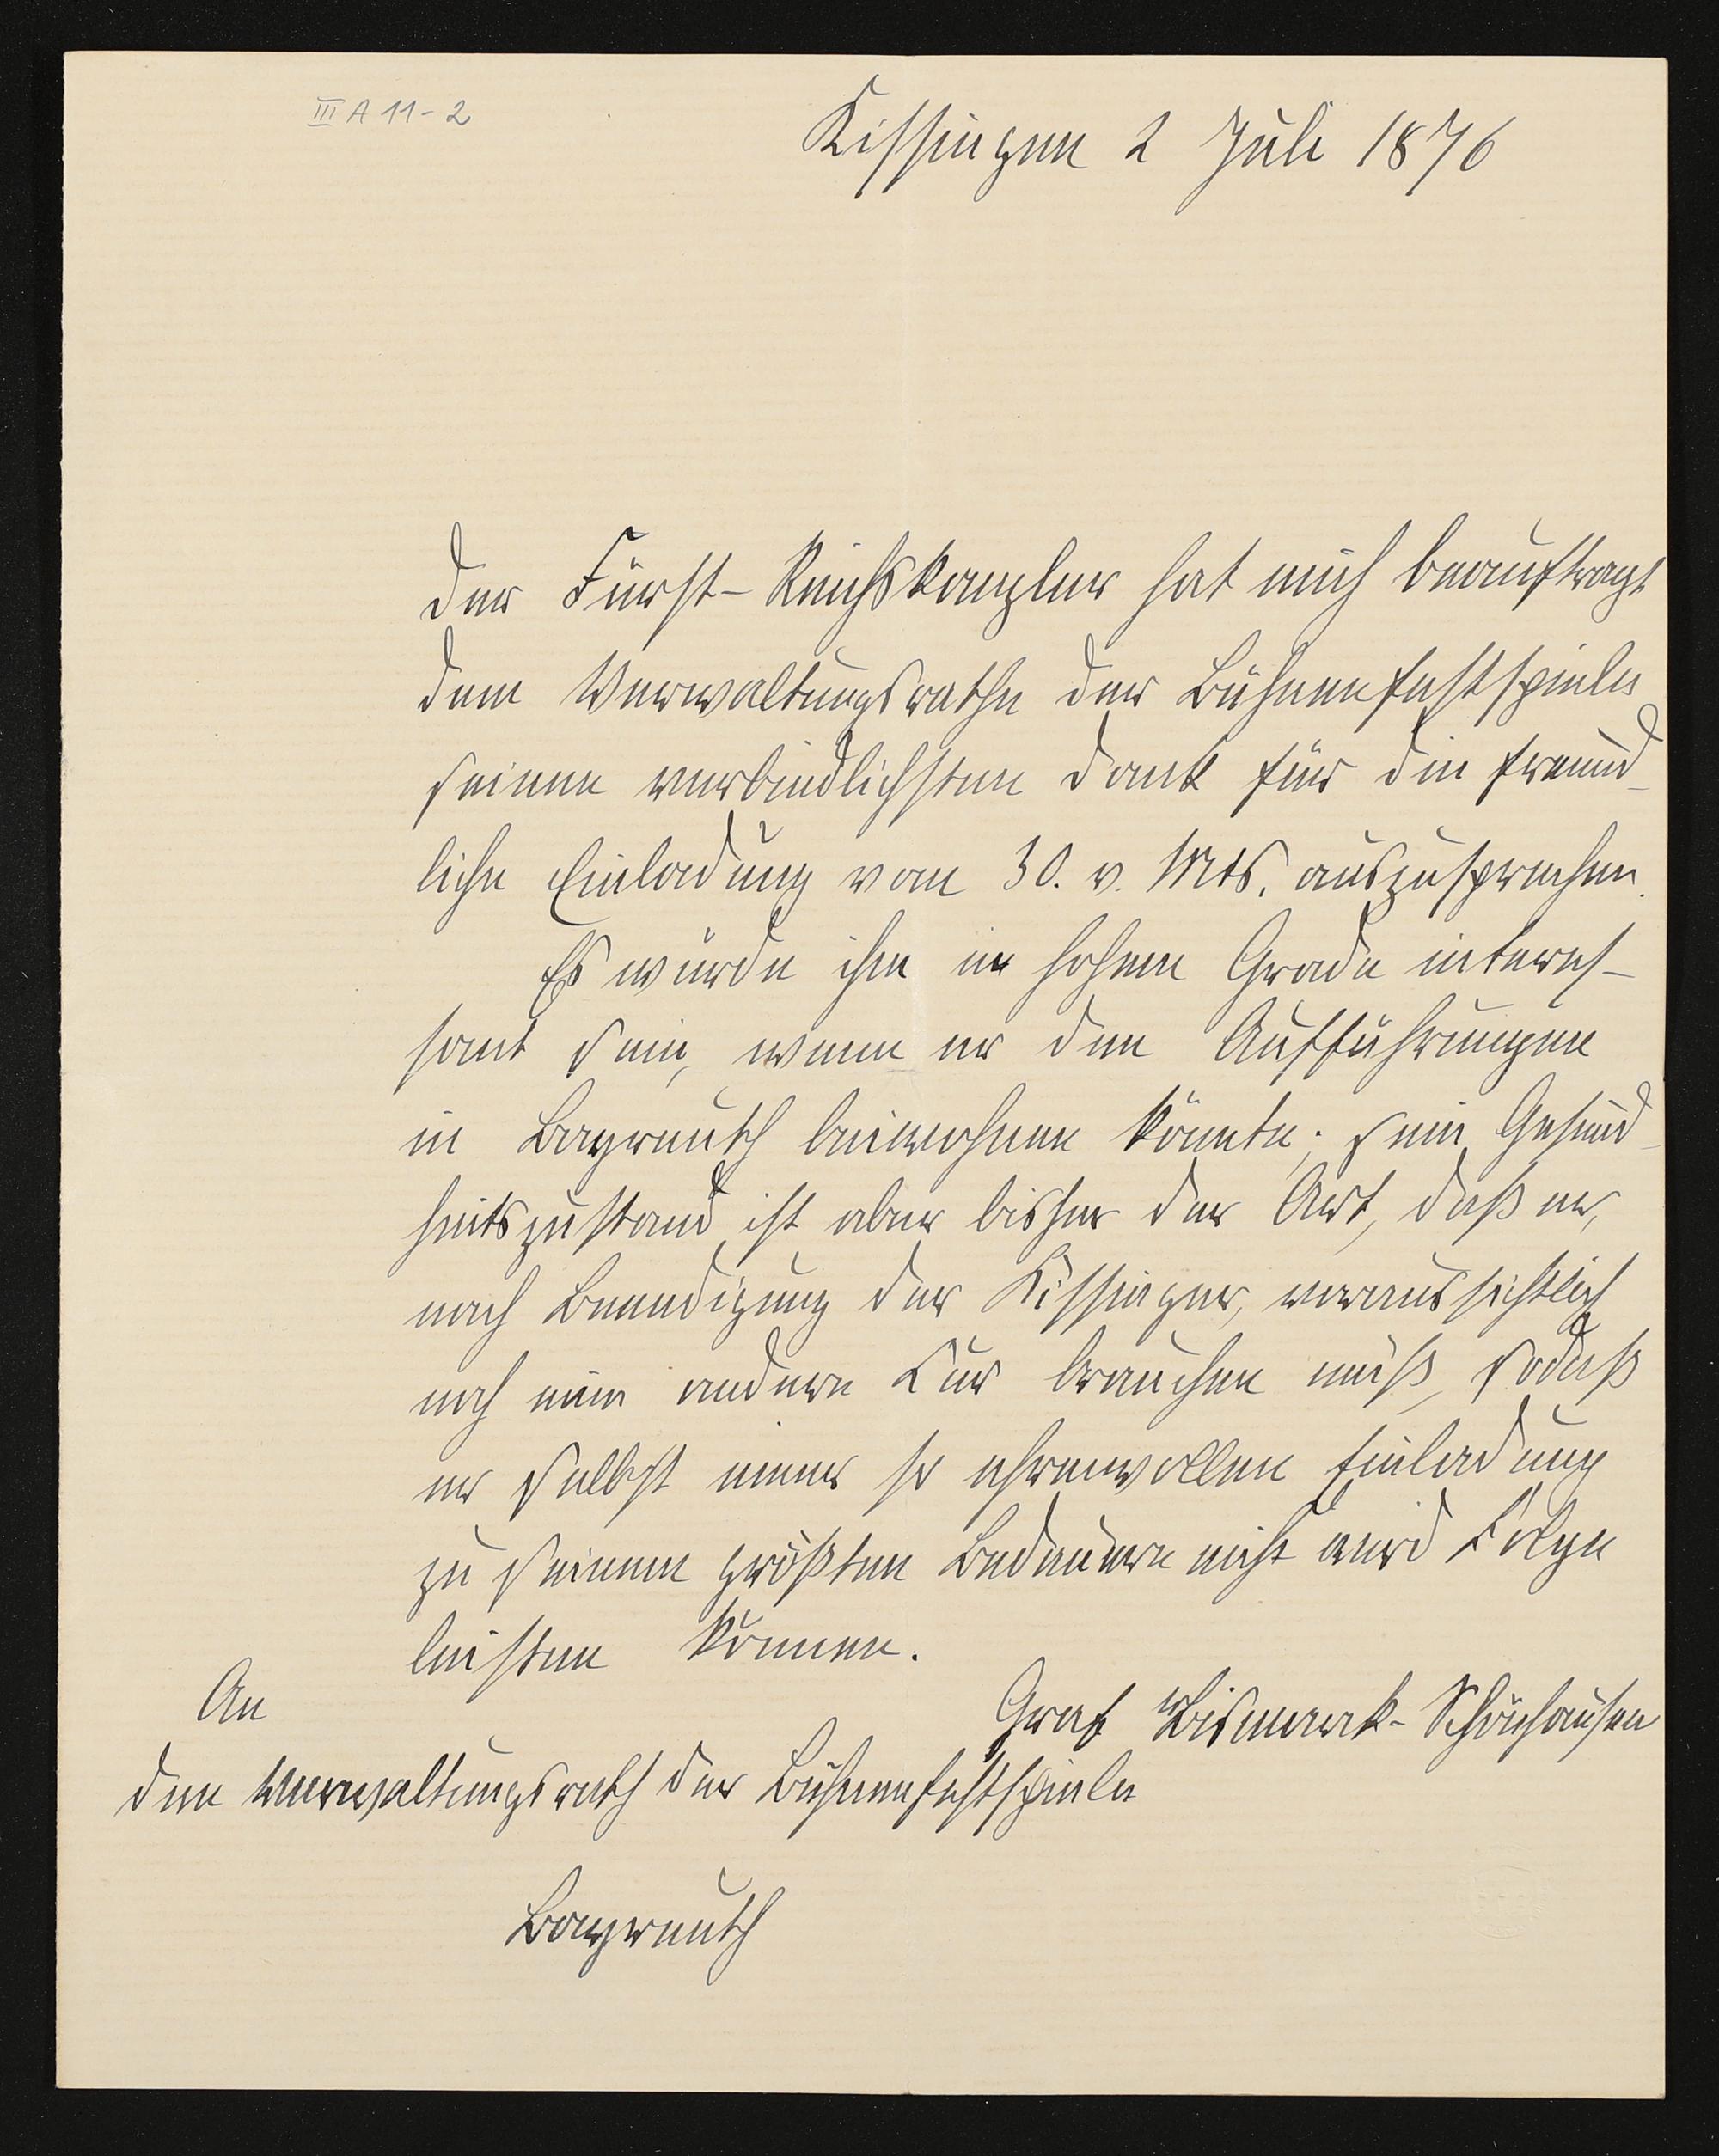 III A 11-2
Kissingen 2 Juli 1876
Der Fürst-Reichskanzler hat mich beauftragt
dem Verwaltungsrathe der Bühnenfestspiele
seinen verbindlichsten Dank für die freund-
liche Einladung vom 30. v. Mts. auszusprechen.
Es würde ihm in hohem Grade interes-
sant sein, wenn er den Aufführungen
in Bayreuth beiwohnen könnte; sein Gesund-
heitszustand ist aber bisher der Art, daß er,
nach Beendigung der Kissinger, voraussichtlich
noch eine andere Kur brauchen muß, sodaß
er selbst einer so ehrenvollen Einladung
zu seinem größten Bedauern nicht wird Folge
leisten können.
Graf Bismarck-Schönhausen
An
den Verwaltungsrath der Bühnenfestspiele
Bayreuth